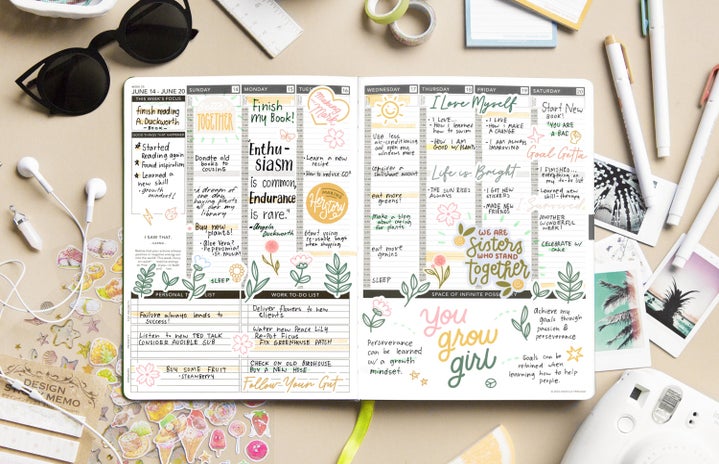 WEEK 25
JUNE 14 - JUNE 20
THIS WEEK'S FOCUS
finish reading
A. Duckworth
- BOOK -
GOOD THINGS THAT HAPPENED
Started
Reading again
Found inspiration
Learned a
new skill -
growth
mindset!
I SAY THAT,
SUNDAY 14
TOGETHER
Donate old
books to
cousins
buying plants
library
Buy new
plants!
- Aloe Vera?
- Peppermint
SLEEP
MONDAY 15
Finish
my Book!
Enthu-
siasm
Is common,
Endurance
is rare."
- Angela
Duckworth
TUESDAY 16
Learn a new
recipe
Herstory
Start using
when
shopping
PERSONAL LIST
Failure always leads to
success!
Listen to new TED TALK
CONSIDER AUDIBLE SUB
BUY SOME FRUIT
- STRAWBERRY
WORK TO-DO LIST
Deliver flowers to new
clients
Water new Peace Lily
Re-Pot Focus
FIX GREENHOUSE PATCH
CHECK ON OLD BIRDHOUSE
BUY A NEW HOSE!
Follow Your Gut
WEDNESDAY 17
Use less
air-conditioning
and open my
window more
eat more
greens!
Make a blog
about caring
for plants
eat more
grains
SLEEP
THURSDAY 18
FRIDAY 19
I Love Myself
- I LOVE...
- How I learned
how to swim
- HOW I AM
GOOD w/ PLANTS
- I LOVE
- How I MAKE
A CHANGE
- I AM ALWAYS
IMPROVING
Life is Bright
- THE SUN RISES
ALWAYS
- I GOT NEW
STICKERS
- MADE NEW
FRIENDS
WE ARE
Sisters
WHO STAND
together
SATURDAY 20
Start New
Book!
YOU ARE
A-BAE
Goal Getta
- I FINISHED...
everything on
my to-do list
- Learned new
skill - through
I Survived
ANOTHER
WONDERFUL
WEEK!
CELEBRATE w/
cake
SPACE OF INFINITE
Perseverance
can be learned
w/ a growth
mindset.
you
grow
girl
Achieve my
goals through
passion &
perseverance
Goals can be
retained when
learning how to
help people.
DESIGN
MEMO